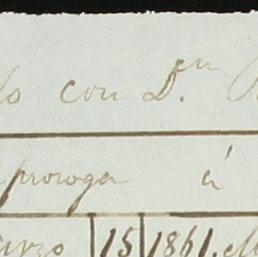 lo con Dⁿ.
proroga á
arzo 15 1861.